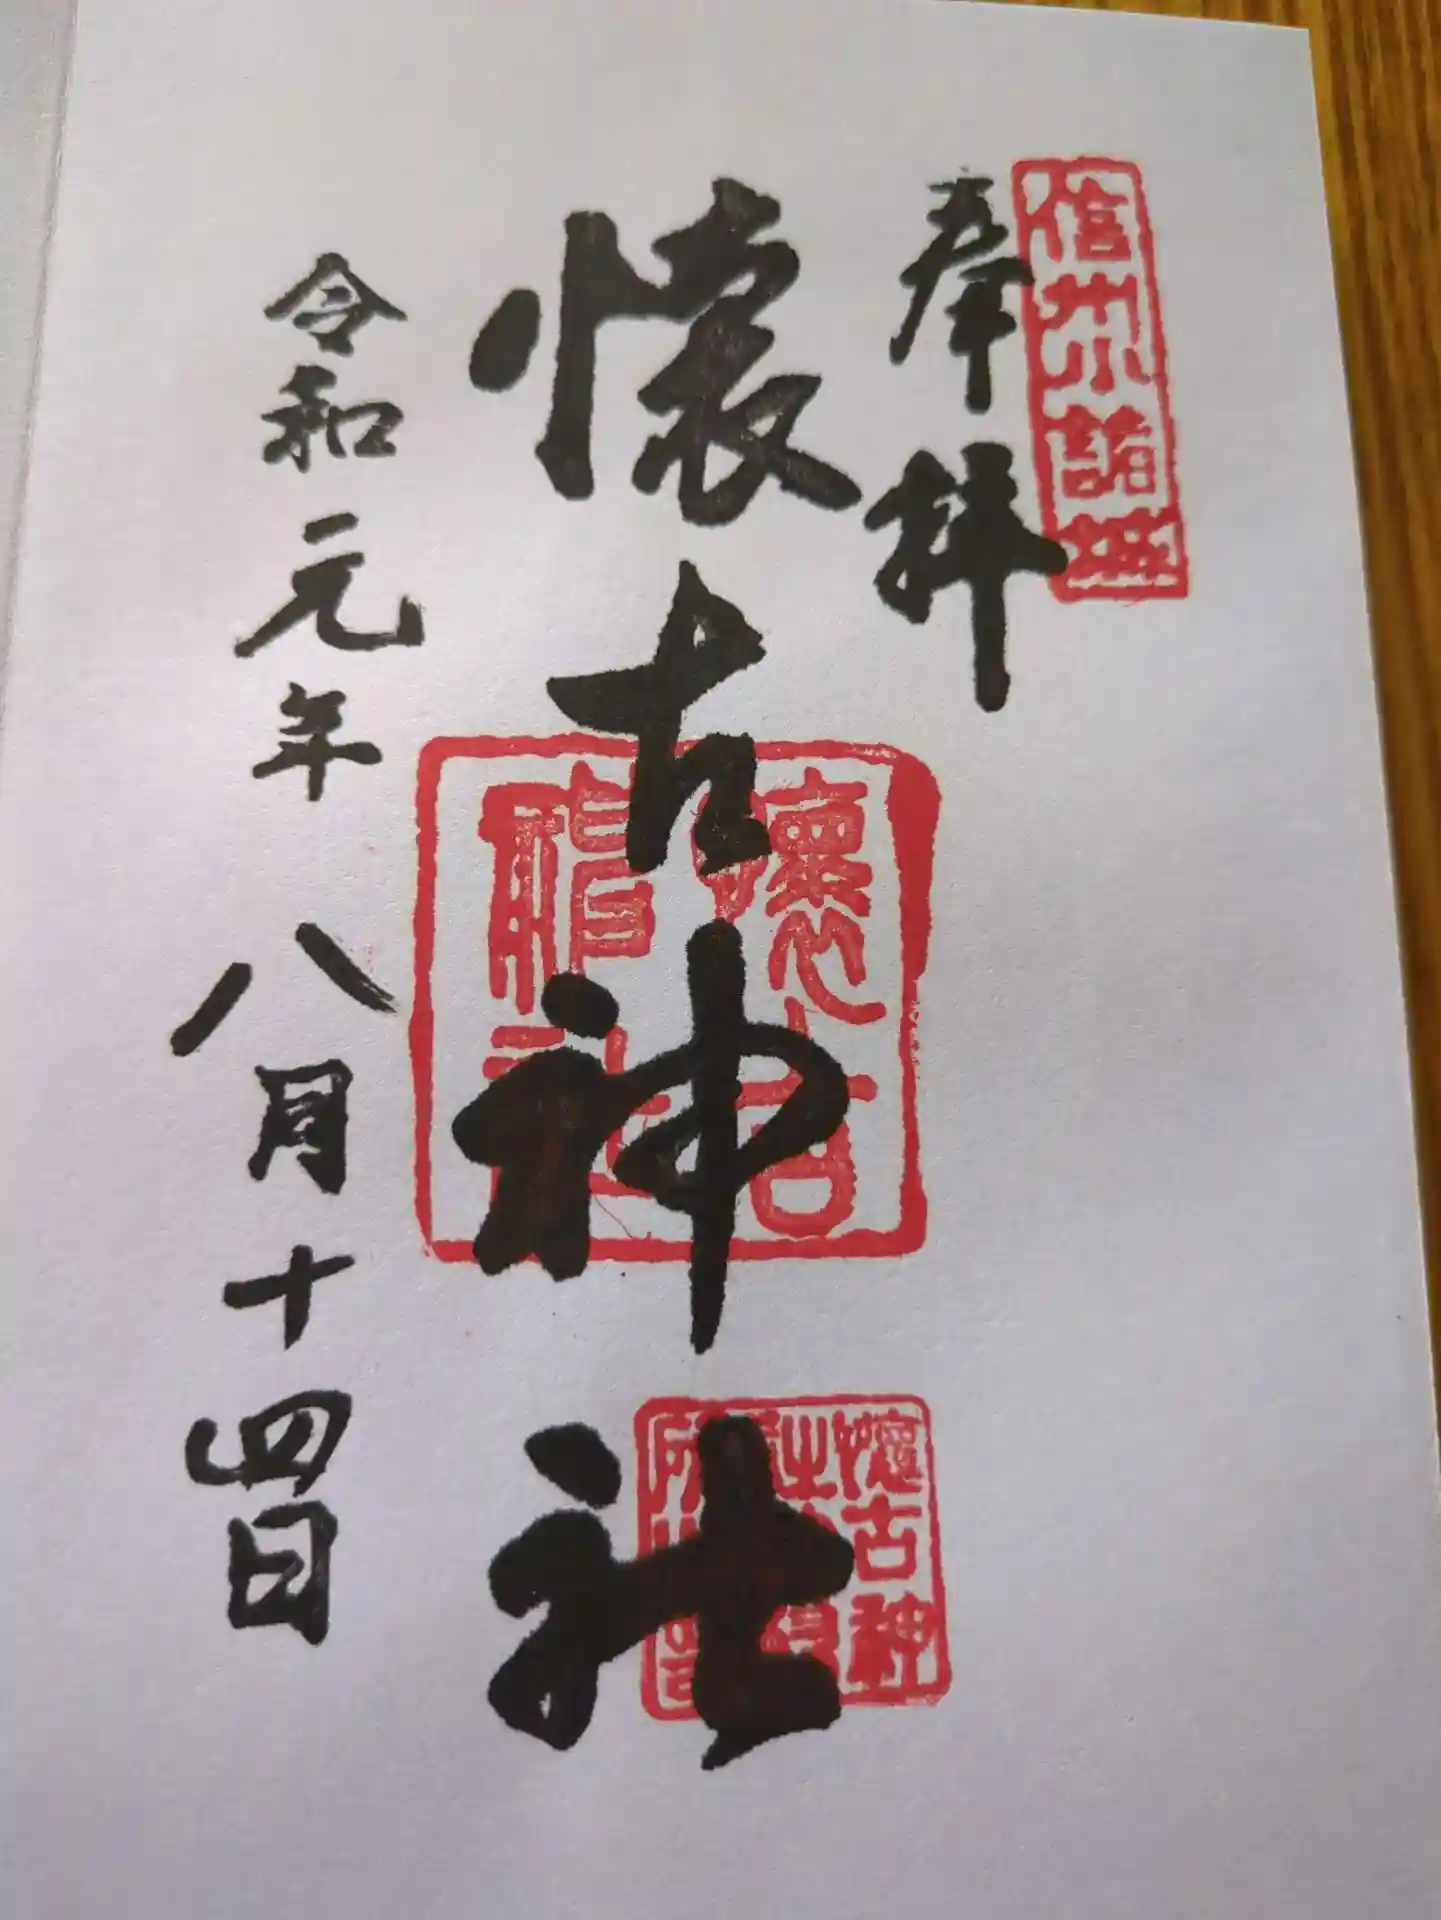 信州小諸城
奉拝
懐古神社
懷古
神社
懐古神
令和元年八月十四日